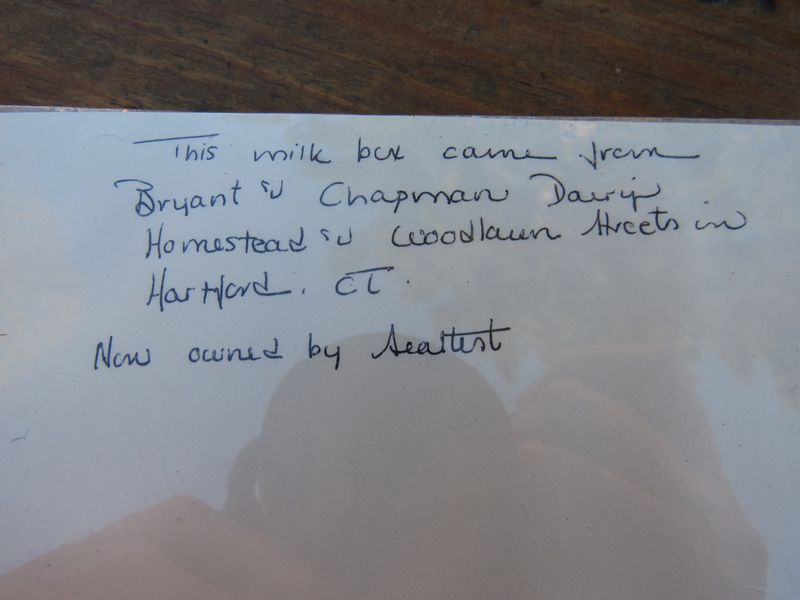 This milk box came from
Bryant & Chapman Dairy
Homestead & Woodlawn Streets in
Hartford, CT.
Now owned by Sealtest